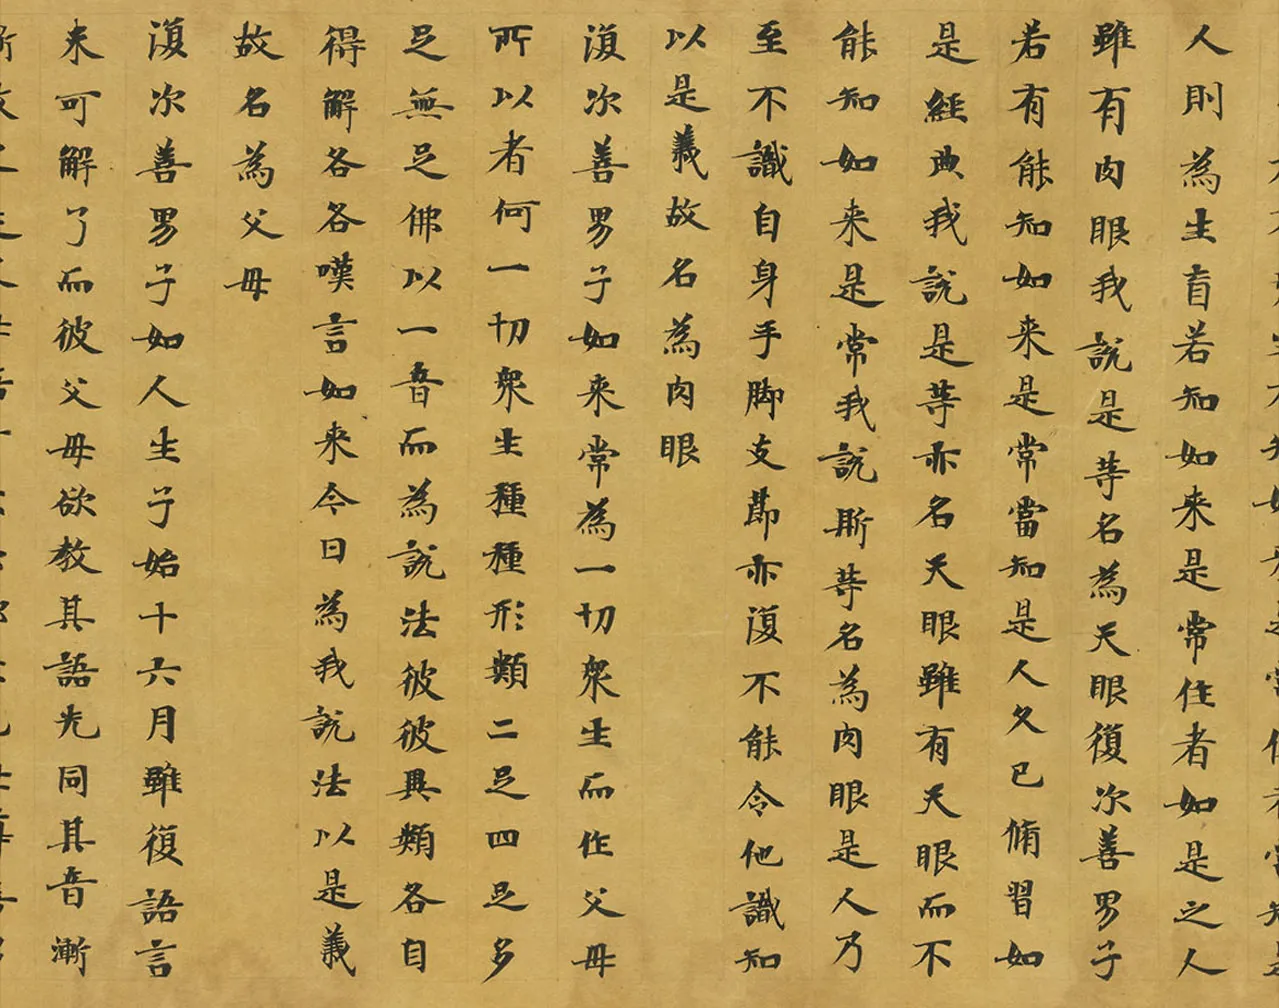 人則為生盲若知如来是常住者如是之人
雖有肉眼我說是等名為天眼復次善男子
若有能知如来是常當知是人久已脩習如
是經典我說是等亦名天眼雖有天眼而不
能知如来是常我說斯等名為肉眼是人乃
至不識自身手脚支莭亦復不能令他識知
以是義故名為肉眼
復次善男子如来常為一切衆生而作父母
所以者何一切衆生種種形類二足四足多
足無足佛以一音而為說法彼彼異類各自
得解各各嘆言如来今日為我說法以是義
故名為父母
復次善男子如人生子始十六月雖復語言
未可解了而彼父母欲教其語先同其音漸